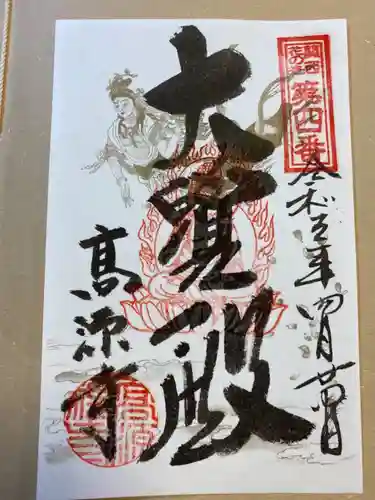 関西
花の寺
第四番
令和五年四月廿四日
大覚殿
高源寺